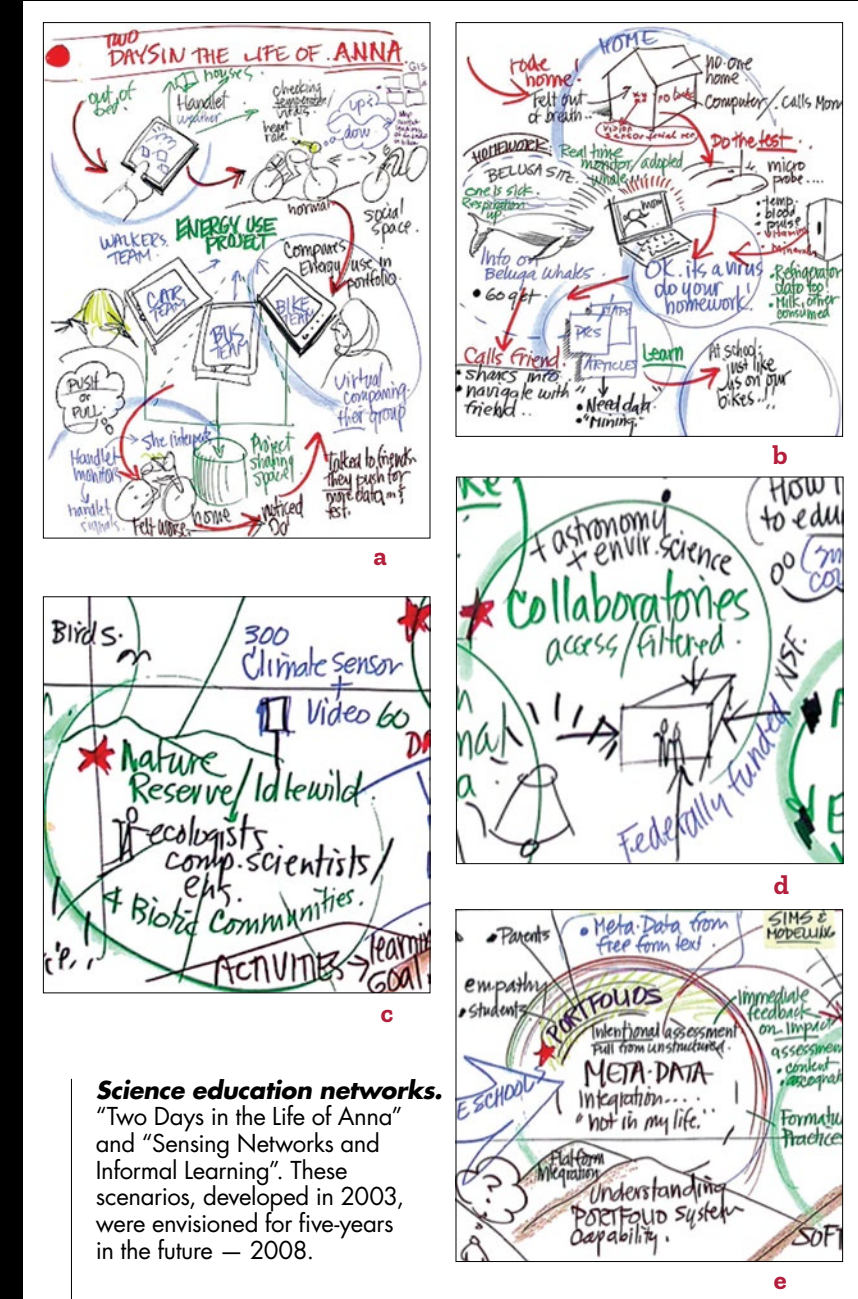 TWO
DAYS IN THE LIFE OF ANNA
out of
bed
houses
Handlet
weather
checking
temperature/
vitals
heart
rate
GIS
up
down
normal
social
space.
WALKERS
TEAM
ENERGY USE
PROJECT
Compares
Energy use in
portfolio.
CAR
TEAM
BUS
TEAM
BIKE
TEAM
PUSH
or
PULL
Virtual
companing
their group
She interpets
Handlet
monitors
handlet
signals.
Project
sharing
space
Talked to friends.
they push for
more data
test.
Felt worse
home
noticed
a
HOME
rode
home!
Felt out
of breath
no one
home
Computer/calls Mom
Do the test
micro
probe....
• temp.
• blood
• pulse
• vitamins
• minerals
HOMEWORK
BELUGA SITE.
one is sick.
Respiration
up
Real time
monitor/adopted
whale
mom
Info on
Beluga whales
• Go get
OK. its a virus
do your
homework.
• Refrigerator
data too!
• Milk, other
consumed
MAPS
PICS
ARTICLES
Learn
Calls Friend
• shares info
• navigate with
friend..
• Need data
• "Mining."
At school..
just like
us on our
bikes..!
b
Birds.
300
Climate Sensor
+
Video 60
Nature
Reserve/Idlewild.
ecologists
comp. scientists/
ehs.
4 Biotic Communities.
ACTIVITIES → learnin
Goal
c
How
to edu
+ astronomy
+ envir. science
Collaboratories
access/filtered.
Federally funded NSF.
d
• Parents
• Meta-Data from
free form text.
SIMS &
MODELLING
empathy
• students
PORTFOLIOS
Intentional assessment
Pull from unstructured.
META-DATA
Integration....
"not in my life."
immediate
feedback
on Impact
assessmen
• content
E SCHOOL
Formativ
Practices
Platform
Integration
Understanding
PORTFOLIO System
Capability.
SOFT
e
Science education networks.
“Two Days in the Life of Anna”
and “Sensing Networks and
Informal Learning”. These
scenarios, developed in 2003,
were envisioned for five-years
in the future — 2008.